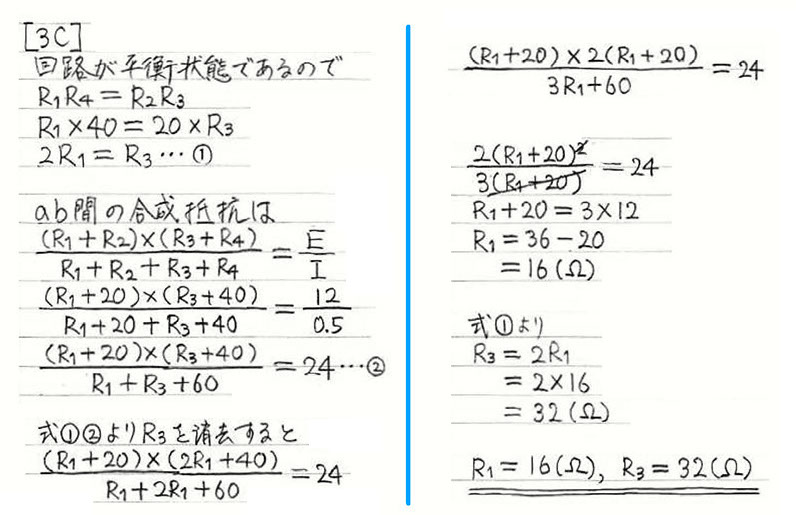 [3C]
回路が平衡状態であるので
R₁R₄=R₂R₃
R₁×40=20×R₃
2R₁=R₃…①
ab間の合成抵抗は
(R₁+R₂)×(R₃+R₄)/(R₁+R₂+R₃+R₄)=E/I
(R₁+20)×(R₃+40)/(R₁+20+R₃+40)=12/0.5
(R₁+20)×(R₃+40)/(R₁+R₃+60)=24…②
式①②よりR₃を消去すると
(R₁+20)×(2R₁+40)/(R₁+2R₁+60)=24
(R₁+20)×2(R₁+20)/(3R₁+60)=24
2(R₁+20)²/3(R₁+20)=24
R₁+20=3×12
R₁=36-20
=16(Ω)
式①より
R₃=2R₁
=2×16
=32(Ω)
R₁=16(Ω), R₃=32(Ω)